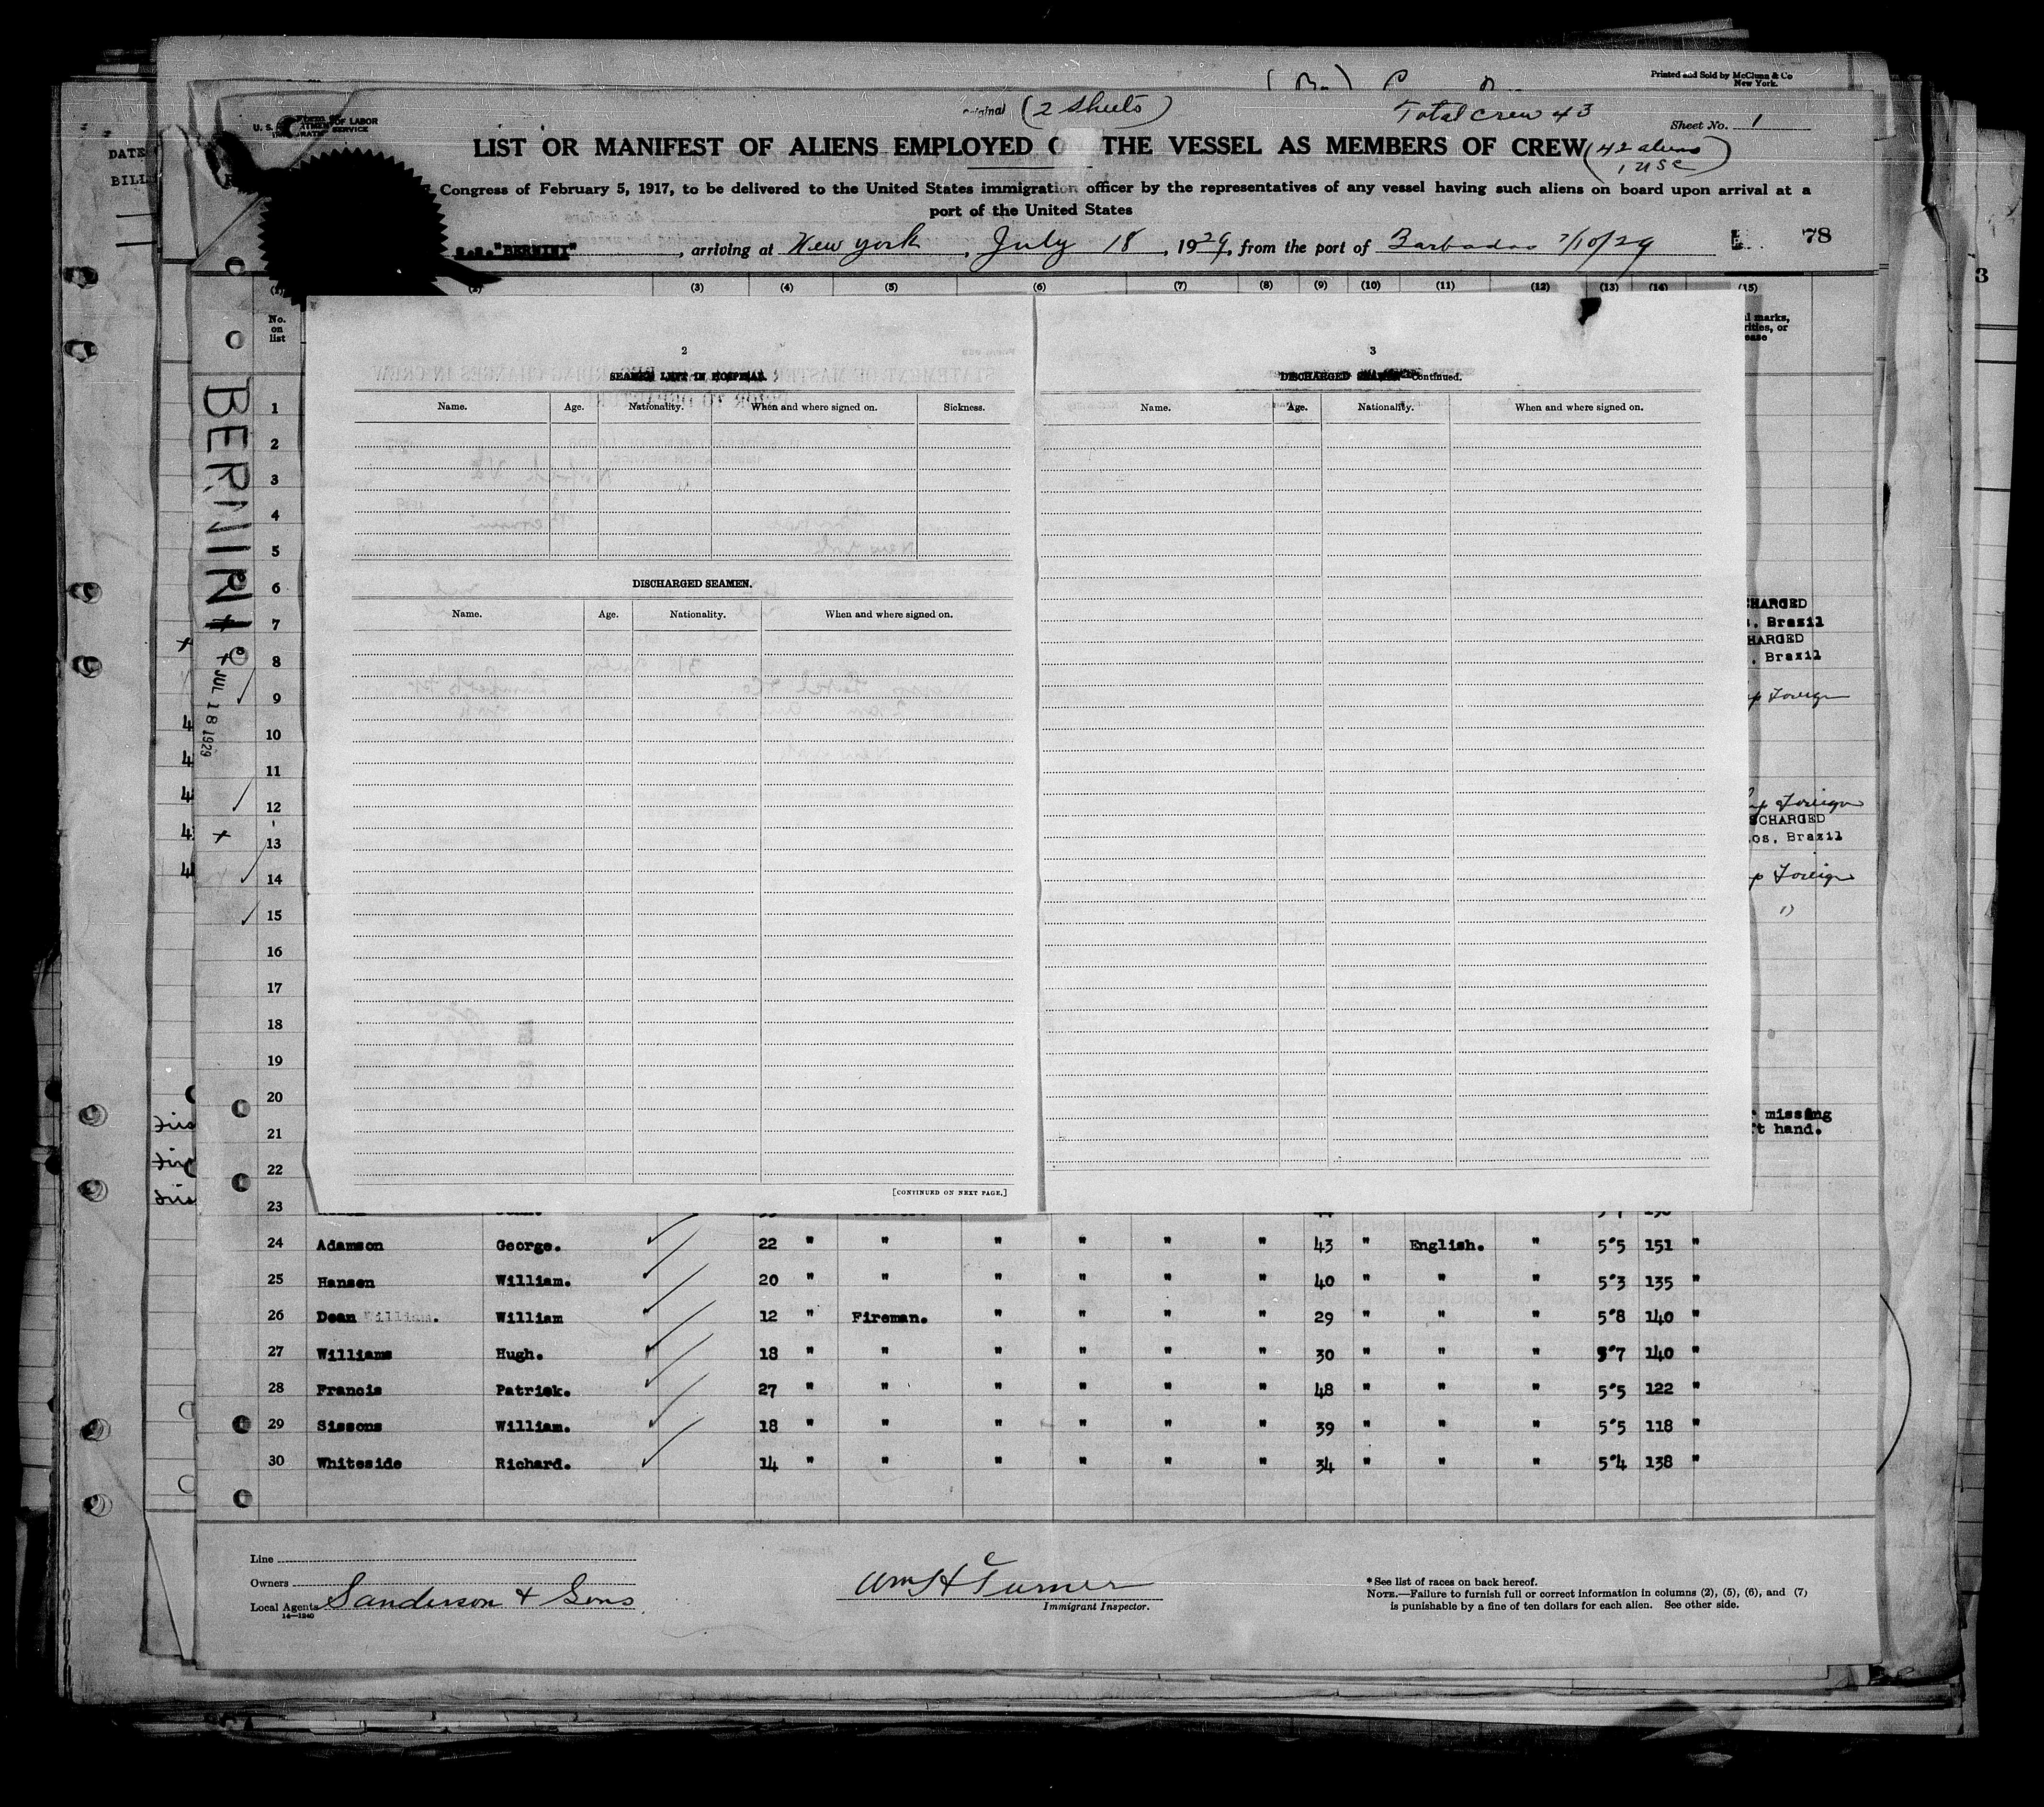 Printed and Sold by McClunn & Co
New York.
(2 Sheets)
Total Crew 43
Sheet No. 1
U. S. DEPARTMENT OF LABOR
IMMIGRATION SERVICE
LIST OR MANIFEST OF ALIENS EMPLOYED O THE VESSEL AS MEMBERS OF CREW
(42 aliens
1 USC)
Congress of February 5, 1917, to be delivered to the United States immigration officer by the representatives of any vessel having such aliens on board upon arrival at a
port of the United States
s.s."BERNINI", arriving at New York, July 18, 1929, from the port of Barbados 7/10/29 78
(2) (3) (4) (5) (6) (7) (8) (9) (10) (11) (12) (13) (14) (15)
No.
on
list
DATE
BILL
BERNINI
JUL 18 1929
2
SEAMEN LEFT IN HOSPITAL.
Name. Age. Nationality. When and where signed on. Sickness.
DISCHARGED SEAMEN.
Name. Age. Nationality. When and where signed on.
[CONTINUED ON NEXT PAGE.]
3
DISCHARGED SEAMEN—Continued.
Name. Age. Nationality. When and where signed on.
marks,
1
2
3
4
5
6
7
8
9
10
11
12
13
14
15
16
17
18
19
20
21
22
23
CHARGED
, Brazil
HARGED
, Brazil
Foreign
Foreign
SCHARGED
os, Brazil
Foreign
missing
hand.
24 Adamson George. 22 " " " " " " 43 " English. " 5'5 151 "
25 Hansen William. 20 " " " " " " 40 " " " 5'3 135 "
26 Dean William. William 12 " Fireman. " " " " 29 " " " 5'8 140 "
27 Williams Hugh. 18 " " " " " " 30 " " " 5'7 140 "
28 Francis Patrick. 27 " " " " " " 48 " " " 5'5 122 "
29 Sissons William. 18 " " " " " " 39 " " " 5'5 118 "
30 Whiteside Richard. 14 " " " " " " 34 " " " 5'4 138 "
Line
Owners
Local Agents Sanderson & Sons
14—1240
Wm H Turner
Immigrant Inspector.
* See list of races on back hereof.
NOTE.—Failure to furnish full or correct information in columns (2), (5), (6), and (7)
is punishable by a fine of ten dollars for each alien. See other side.